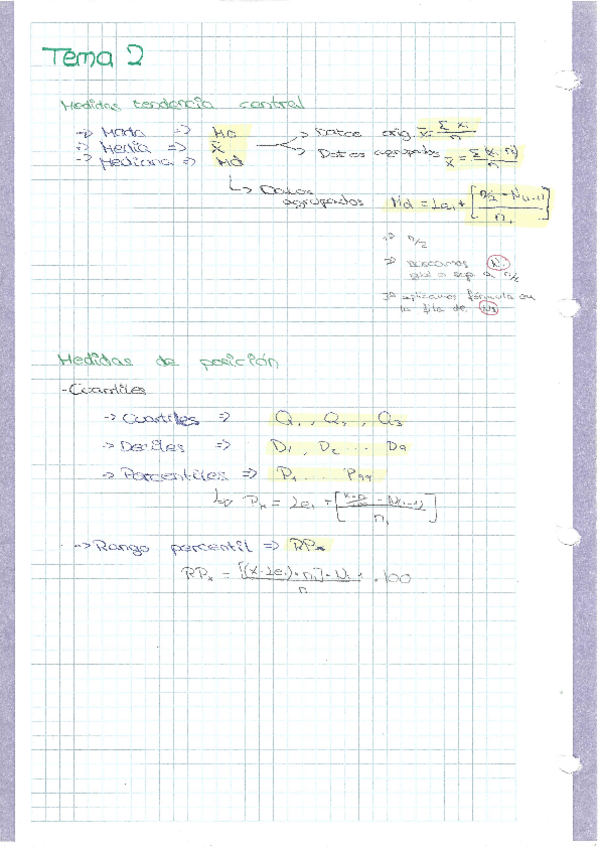 Tema 2
Medidas tendencia central
-> Moda => Mo
-> Media => X̄ -> Datos orig. X̄ = Σ Xi / n
-> Datos agrupados X̄ = Σ (Xi · ni) / n
-> Mediana => Md
-> Datos agrupados Md = Lei + [ (n/2 - N(i-1)) / ni ]
1º n/2
2º buscamos Ni igual o sup a n/2
3º aplicamos fórmula en
la fila de Ni
Medidas de posición
- Cuantiles
-> Cuartiles => Q1, Q2, Q3
-> Deciles => D1, D2 ... D9
-> Percentiles => P1 .... P99
-> Pk = Lei + [ (k·n/100 - N(i-1)) / ni ]
-> Rango percentil => RPx
RPx = [(X-Lei) · ni] + Ni-1 / n · 100